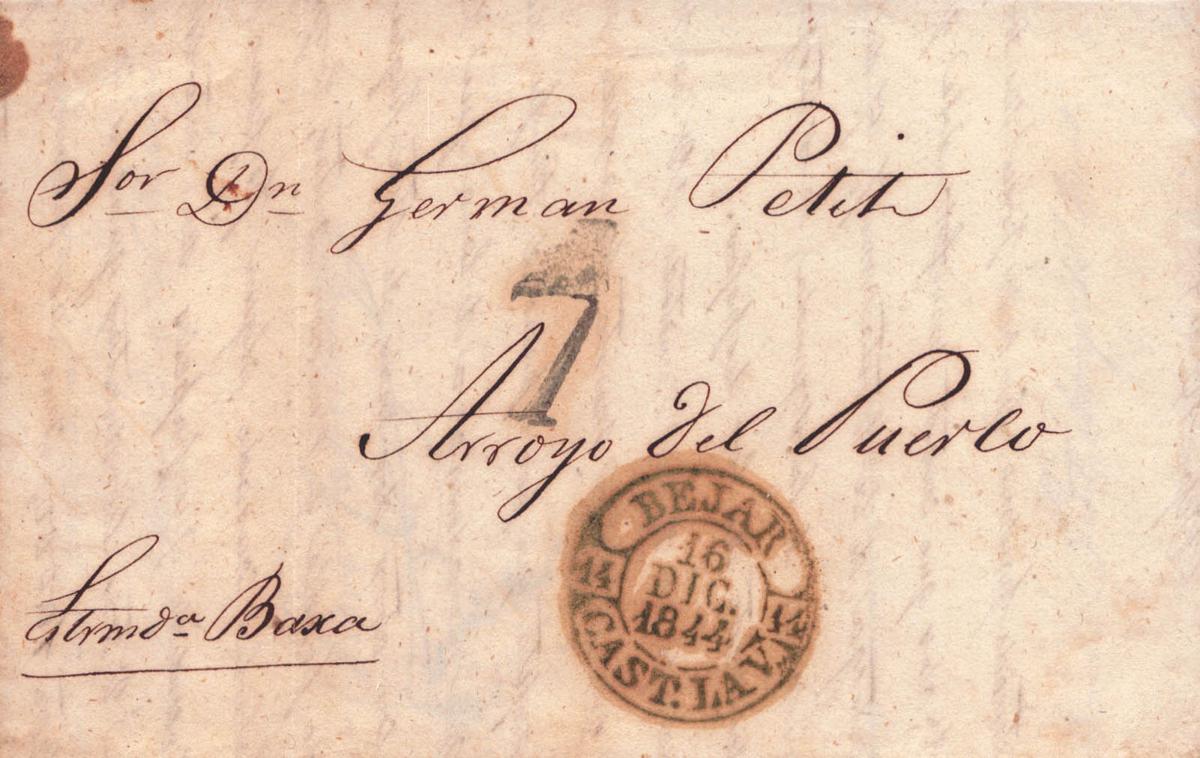 Sor Dn German Petit
7
Arroyo del Puerto
BEJAR
14 14
16
DIC.
1844
CAST. LA V.
Estrmda Baxa